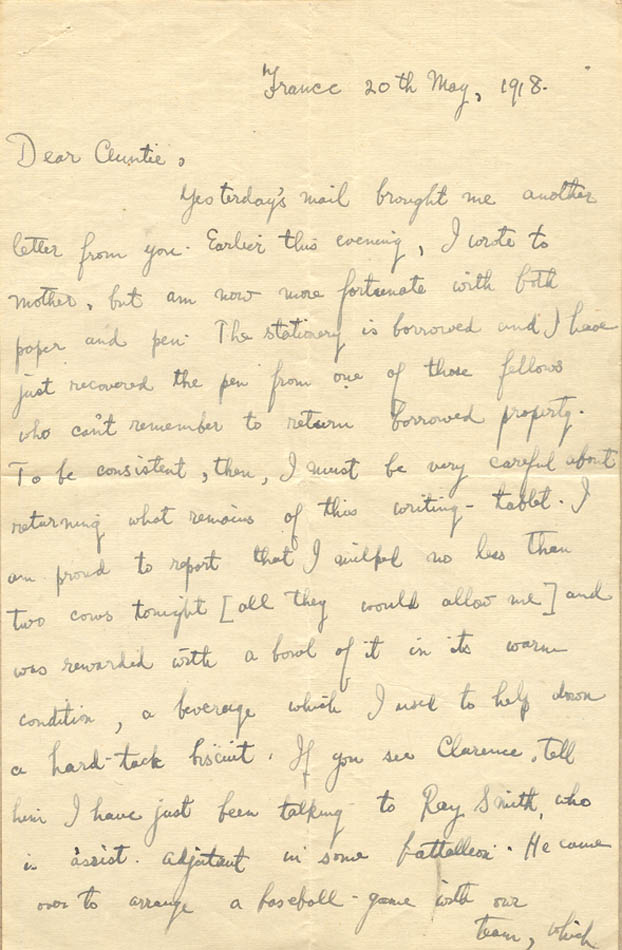 France 20th May, 1918.
Dear Auntie,
Yesterday's mail brought me another
letter from you. Earlier this evening, I wrote to
mother, but am now more fortunate with both
paper and pen. The stationery is borrowed and I have
just recovered the pen from one of those fellows
who can't remember to return borrowed property.
To be consistent, then, I must be very careful about
returning what remains of this writing-tablet. I
am proud to report that I milked no less than
two cows tonight [all they would allow me] and
was rewarded with a bowl of it in its warm
condition, a beverage which I used to help down
a hard-tack biscuit. If you see Clarence, tell
him I have just been talking to Ray Smith, who
is assist. adjutant in some battalion. He came
over to arrange a baseball-game with our
team, which